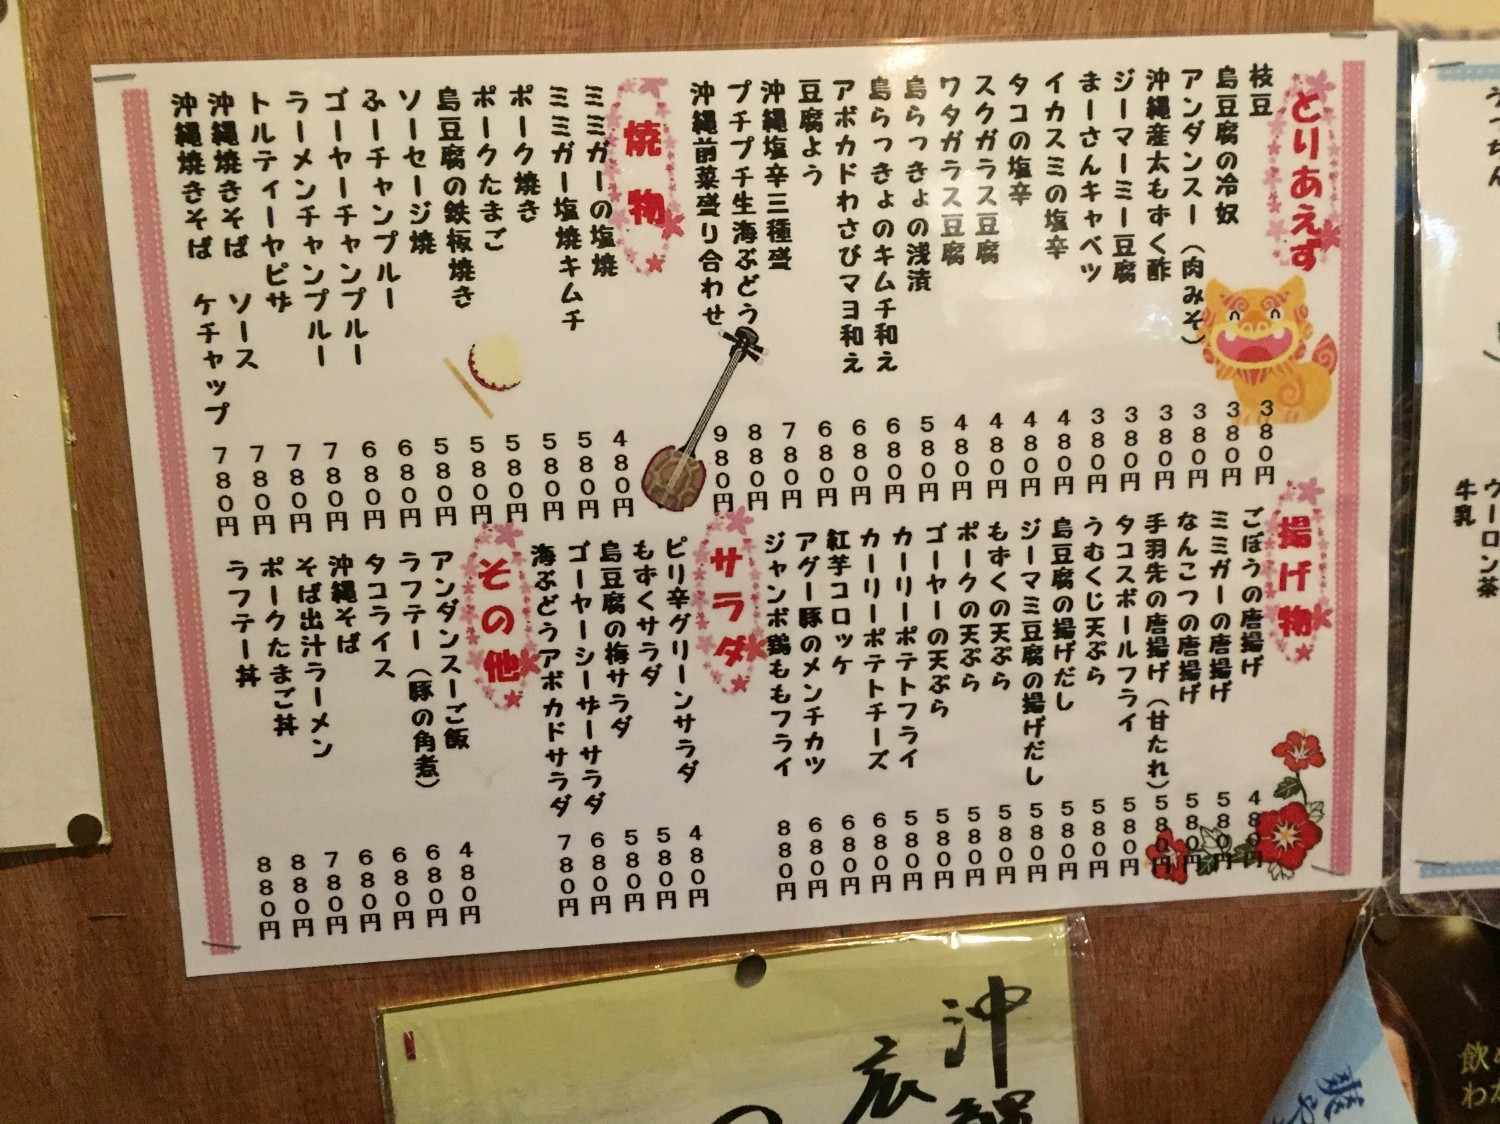 とりあえず
枝豆 380円
島豆腐の冷奴 380円
アンダンスー(肉みそ) 380円
沖縄産太もずく酢 380円
ジーマーミー豆腐 380円
まーさんキャベツ 380円
イカスミの塩辛 480円
タコの塩辛 480円
スクガラス豆腐 480円
ワタガラス豆腐 480円
島らっきょの浅漬 580円
島らっきょのキムチ和え 680円
アボカドわさびマヨ和え 680円
豆腐よう 680円
沖縄塩辛三種盛 780円
プチプチ生海ぶどう 880円
沖縄前菜盛り合わせ 980円
焼物
ミミガーの塩焼 480円
ミミガー塩焼キムチ 580円
ポーク焼き 580円
ポークたまご 580円
島豆腐の鉄板焼き 580円
ソーセージ焼 580円
ふーチャンプルー 680円
ゴーヤーチャンプルー 680円
ラーメンチャンプルー 780円
トルティーヤピザ 780円
沖縄焼きそば ソース 780円
沖縄焼きそば ケチャップ 780円
揚げ物
ごぼうの唐揚げ 480円
ミミガーの唐揚げ 580円
なんこつの唐揚げ 580円
手羽先の唐揚げ(甘たれ) 580円
タコスボールフライ 580円
うむくじ天ぷら 580円
島豆腐の揚げだし 580円
ジーマミ豆腐の揚げだし 580円
もずくの天ぷら 580円
ポークの天ぷら 580円
ゴーヤーの天ぷら 580円
カーリーポテトフライ 580円
カーリーポテトチーズ 680円
紅芋コロッケ 680円
アグー豚のメンチカツ 680円
ジャンボ鶏ももフライ 880円
サラダ
ピリ辛グリーンサラダ 480円
もずくサラダ 580円
島豆腐の梅サラダ 580円
ゴーヤーシーザーサラダ 680円
海ぶどうアボカドサラダ 780円
その他
アンダンスーご飯 480円
ラフテー(豚の角煮) 680円
タコライス 680円
沖縄そば 680円
そば出汁ラーメン 780円
ポークたまご丼 880円
ラフテー丼 880円
ウーロン茶
牛乳
沖縄